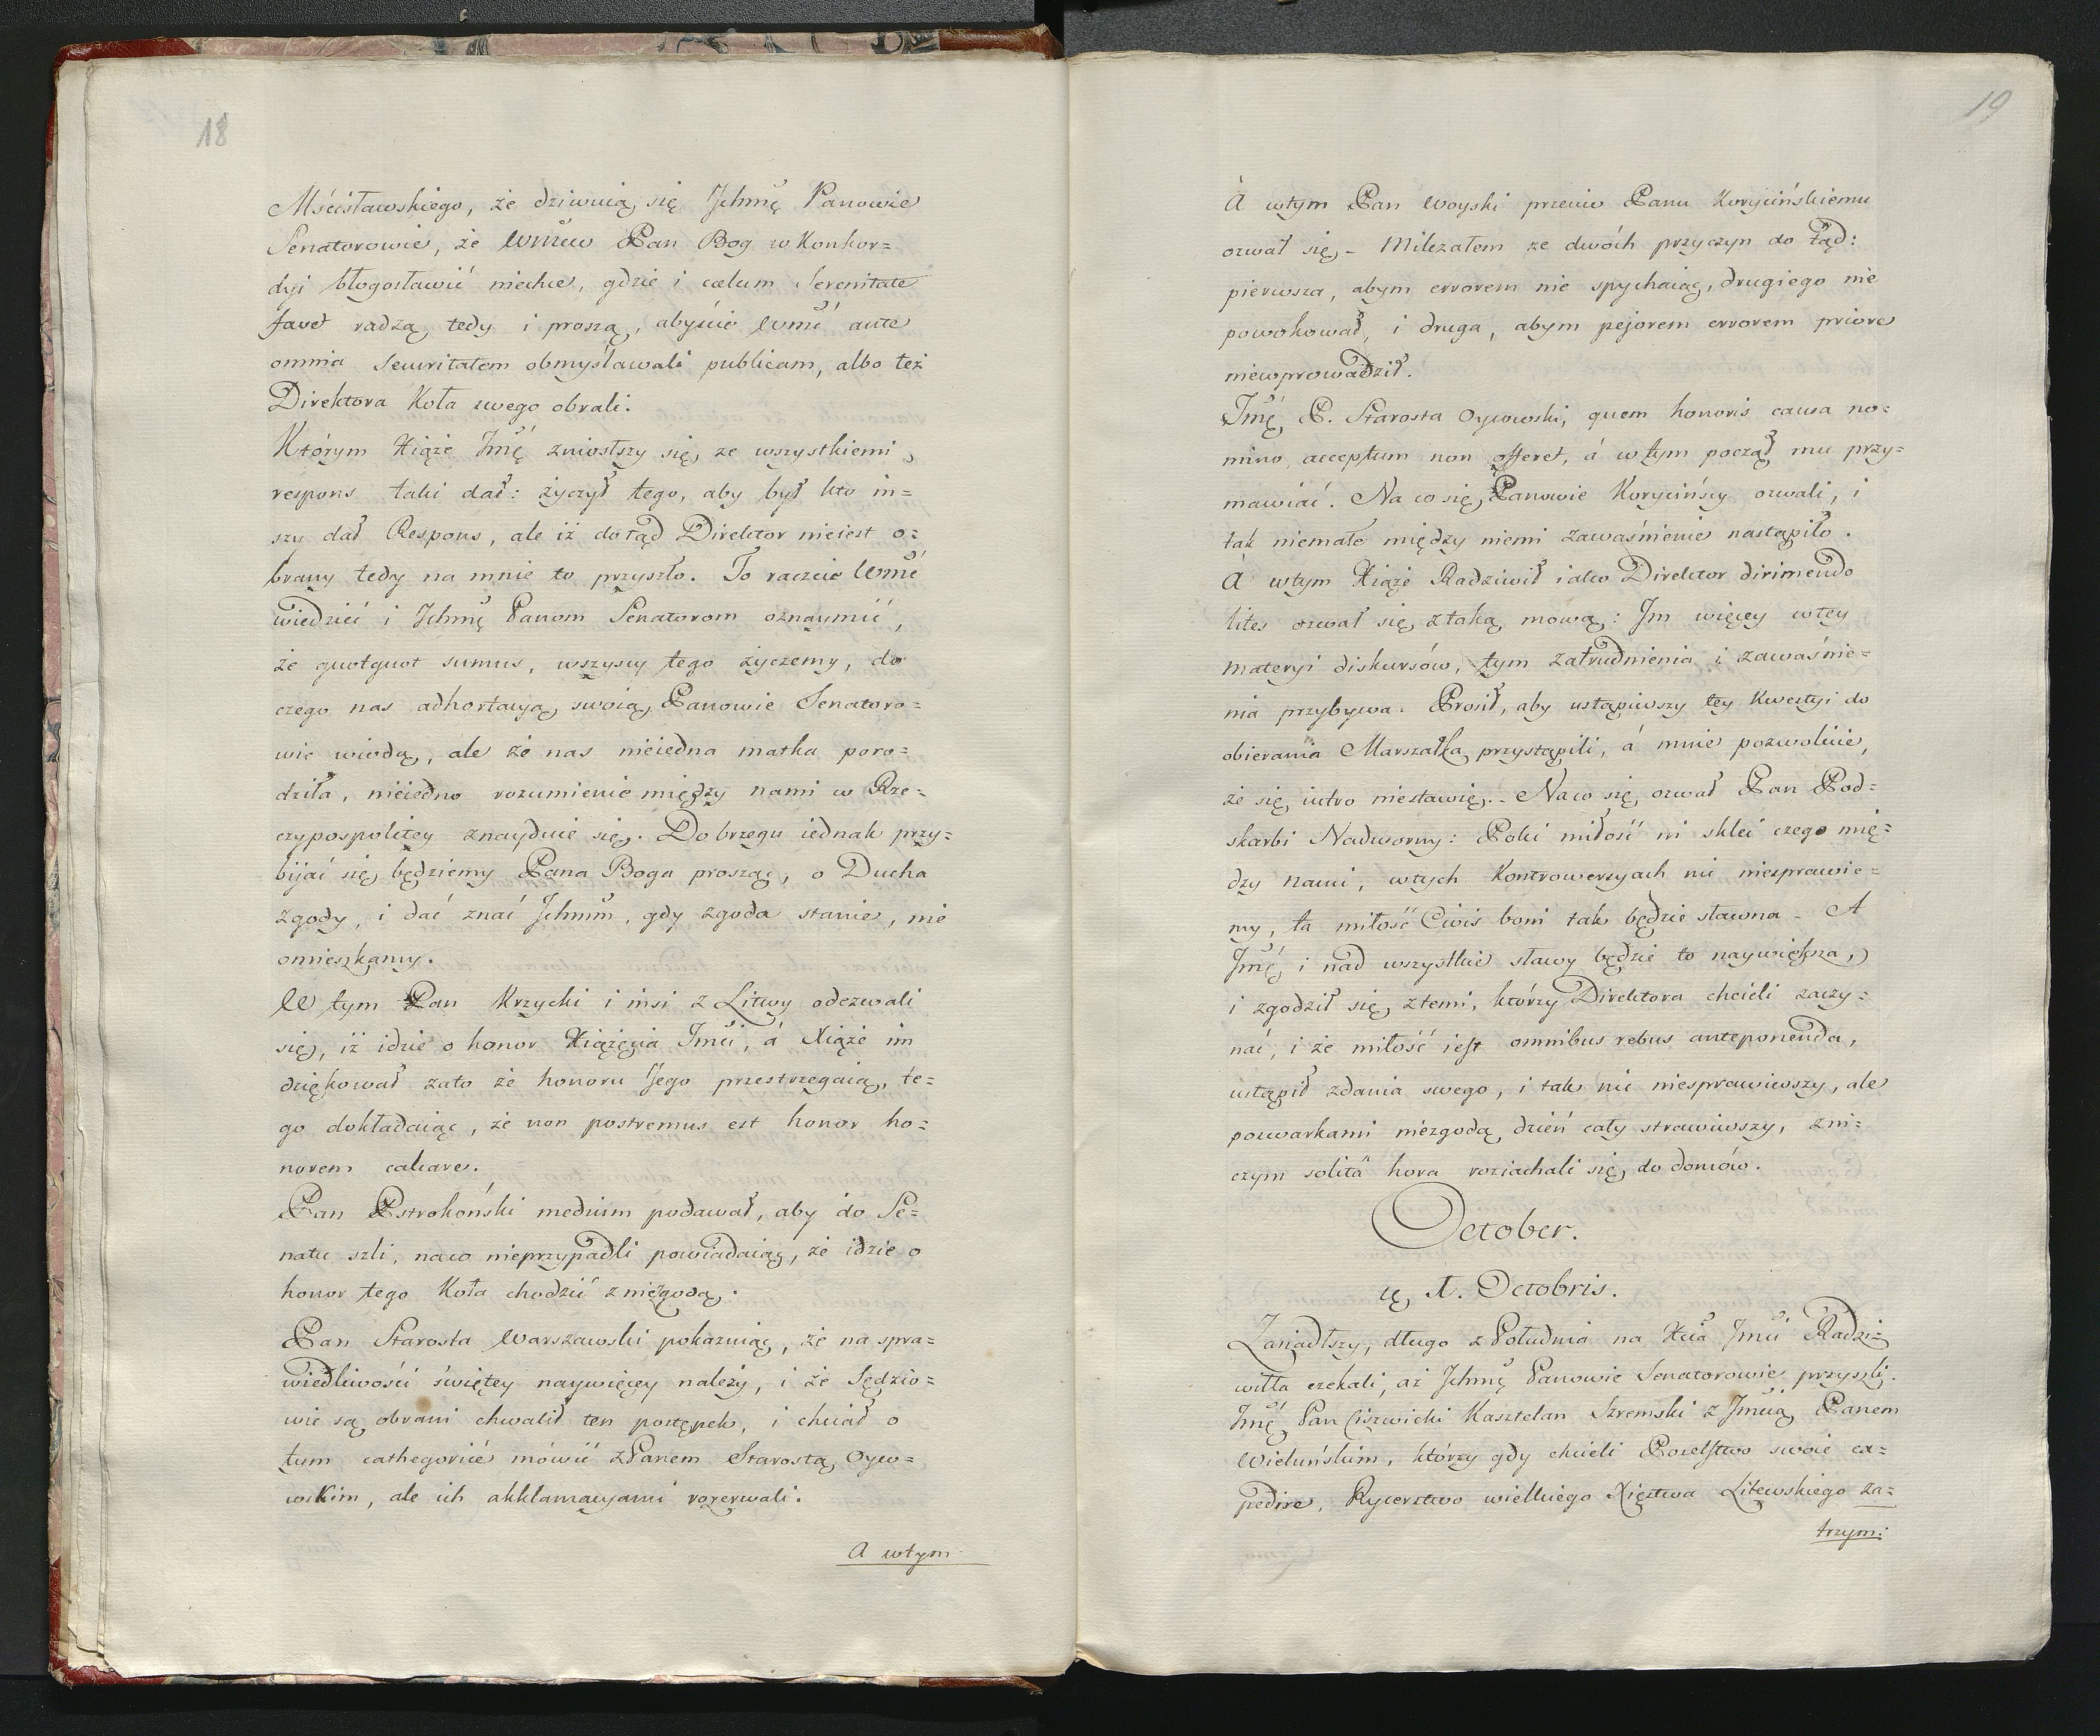 18
Mścisławskiego, że dziwuią się Jchmę Panowie
Senatorowie, że Wmciów Pan Bog w Konkor=
dyi błogosławić niechce, gdzie i cælum Serenitate
favet radzą tedy i proszą, abyście Wmć ante
omnia securitatem obmyślawali publicam, albo też
Direktora Koła swego obrali.
Którym Xiąże Jmć zniosłszy się ze wszystkiemi,
respons taki dał: życzył tego, aby był kto in=
szy dał Respons, ale iż dotąd Direktor nieiest o=
brany tedy na mnie to przyszło. To raczcie Wmć
wiedzieć i Jchmę Panom Senatorom oznaymić,
że quotquot sumus, wszyscy tego życzemy, do
czego nas adhortacyą swoią Panowie Senatoro=
wie wiodą, ale że nas nieiedna matka poro=
dziła, nieiedno rozumienie między nami w Rze=
czypospolitey znayduie się. Do brzegu iednak przy=
bijać się będziemy Pana Boga prosząc, o Ducha
zgody, i dać znać Jchmm, gdy zgoda stanie, nie
omieszkamy.
W tym Pan Krzycki i insi z Litwy odezwali
się, iż idzie o honor Xiążęcia Jmci, á Xiąże im
dziękował zato że honoru Jego przestrzegaią, te=
go dokładaiąc, że non postremus est honor ho=
norem calcare.
Pan Pstrokoński medium podawał, aby do Se=
natu szli, naco nieprzypadli powiadaiąc, że idzie o
honor tego Koła chodzić z niezgodą.
Pan Starosta Warszawski pokazuiąc, że na spra=
wiedliwości świętey naywięcey należy, i że Sędzio=
wie są obrani chwalił ten postępek, i chciał o
tum cathegorice mówić z Panem Starostą Oyco=
wskim, ale ich akklamacyami rozerwali.
A wtym
19
A wtym Pan Woyski przeciw Panu Korycińskiemu
ozwał się - Milczałem ze dwóch przyczyn do tąd:
pierwsza, abym errorem nie spychaiąc, drugiego nie
powokował, i druga, abym pejorem errorem priore
niewprowadził.
Jmć P. Starosta Oycowski, quem honoris causa no=
mino acceptum non offeret, á w tym począł mu przy=
mawiać. Na co się Panowie Korycińscy ozwali, i
tak niemałe między niemi zawaśnienie nastąpiło.
A wtym Xiąże Radziwił iako Direktor dirimendo
lites ozwał się z taką mową: Im więcey wtey
materyi diskursów, tym zatrudnienia i zawaśnie=
nia przybywa. Prosił, aby ustąpiwszy tey Kwestyi do
obierania Marszałka przystąpili, á mnie pozwolcie,
że się iutro niestawię. - Naco się ozwał Pan Pod=
skarbi Nadworny: Poki miłość ni sklei czego mię=
dzy nami, wtych Kontrowersyach nic niesprawie=
my, ta miłość Civis boni tak będzie sławna - A
Jmć i nad wszystkie sławy będzie to naywiększa,
i zgodził się z temi, którzy Direktora chcieli zaczy=
nać, i że miłość iest omnibus rebus anteponenda,
ustąpił zdania swego, i tak nic niesprawiwszy, ale
poswarkami niezgodą dzień cały strawiwszy, zni=
czym solitâ hora roziachali się do domów.
October.
1. Octobris.
Zasiadłszy, długo z Południa na Xcia Jmci Radzi=
wiłła czekali, aż Jchmę Panowie Senatorowie przyszli.
Jmć Pan Ciświcki Kasztelan Szremski z Jmcią Panem
Wieluńskim, którzy gdy chcieli Poselstwo swoie ex=
pedire, Rycerstwo wielkiego Xięstwa Litewskiego za=
trzym: